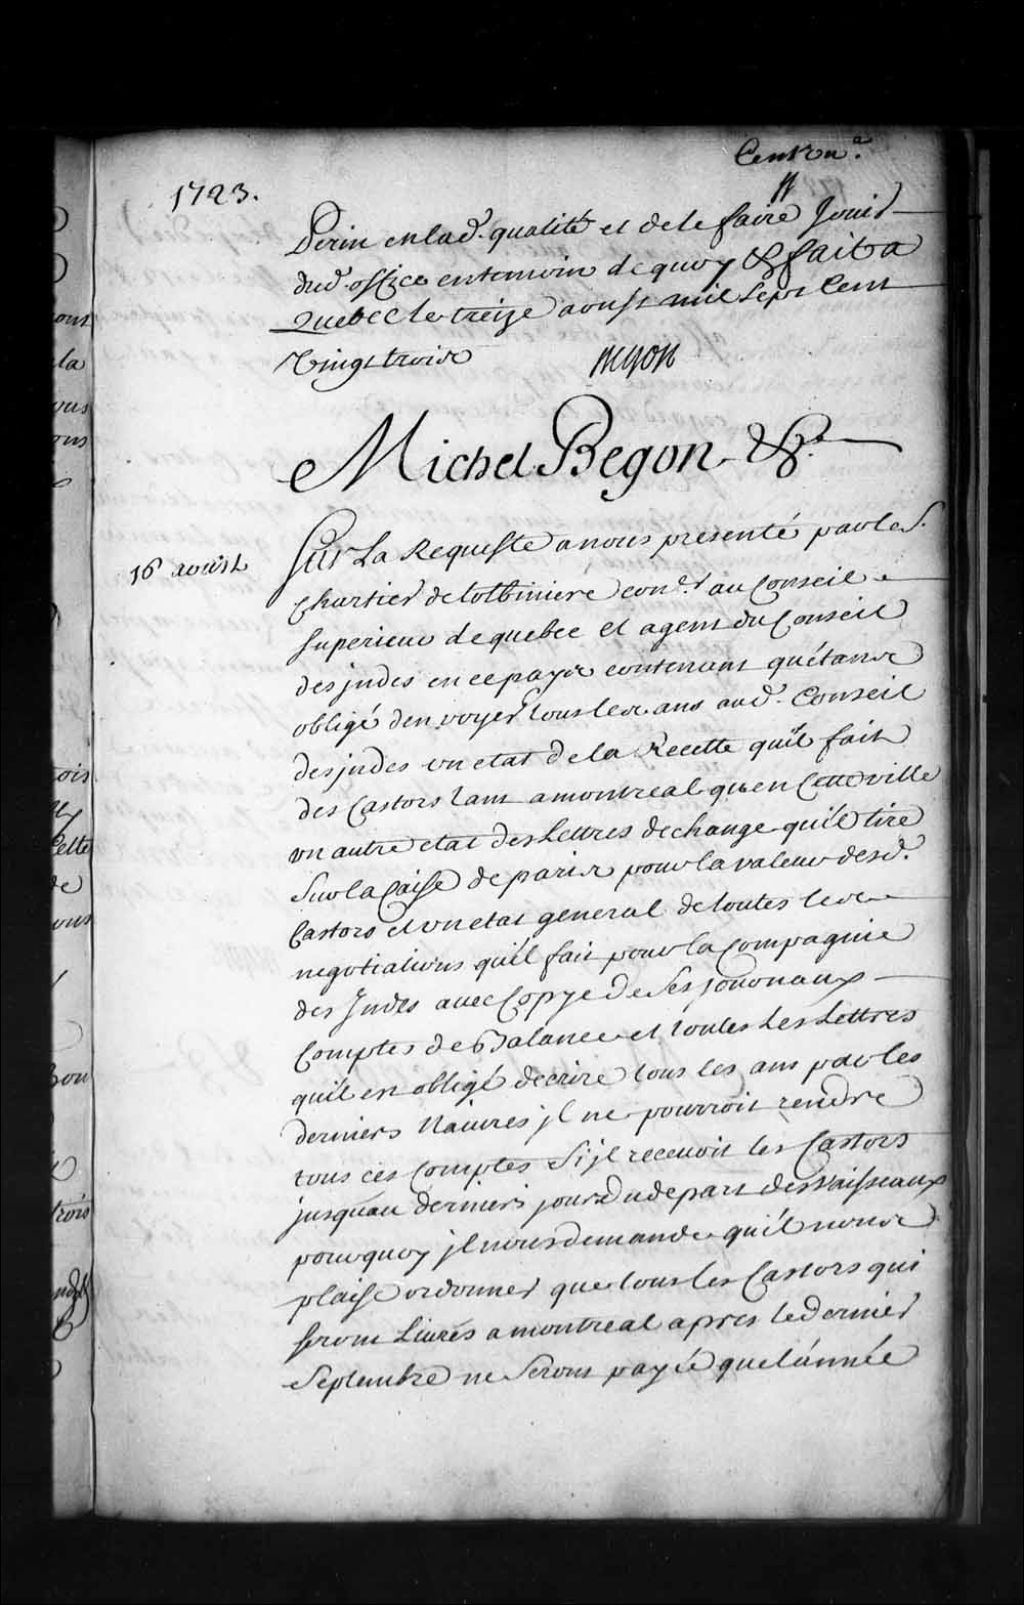 Cent un.e
1723.
Perin en lad. qualité et de le faire Jouir
dud. office en temoin de quoy &c fait a
Quebec le treize aoust mil Sept Cent
Vingt trois Begon
Michel Begon &c.a
16 aoust
Sur La Requeste a nous presenté par le S.
Chartier de lotbiniere con.er au Conseil
superieur de quebec et agent du Conseil
des jndes en ce payis contenant quétant
obligé den voyer tous les ans aud. Conseil
des jndes un etat de la Recette quil fait
des Castors tant a montreal qu'en Cette ville
un autre etat des Lettres de change quil tire
Sur la Caisse de paris pour la valeur desd.
Castors et un etat general de toutes les
negotiations quil fait pour la Compagnie
des Jndes avec Copye de Ses journaux
Comptes de Balance et toutes Les Lettres
quil est obligé decrire tous les ans par les
derniers Navires jl ne pourroit rendre
tous ces Comptes Si jl recevoit les Castors
jusquau derniers jours du depart des Vaisseaux
pourquoy jl nous demande quil nous
plaise ordonner que tous les Castors qui
seront Livrés a montreal apres le dernier
Septembre ne Seront payée que l'année